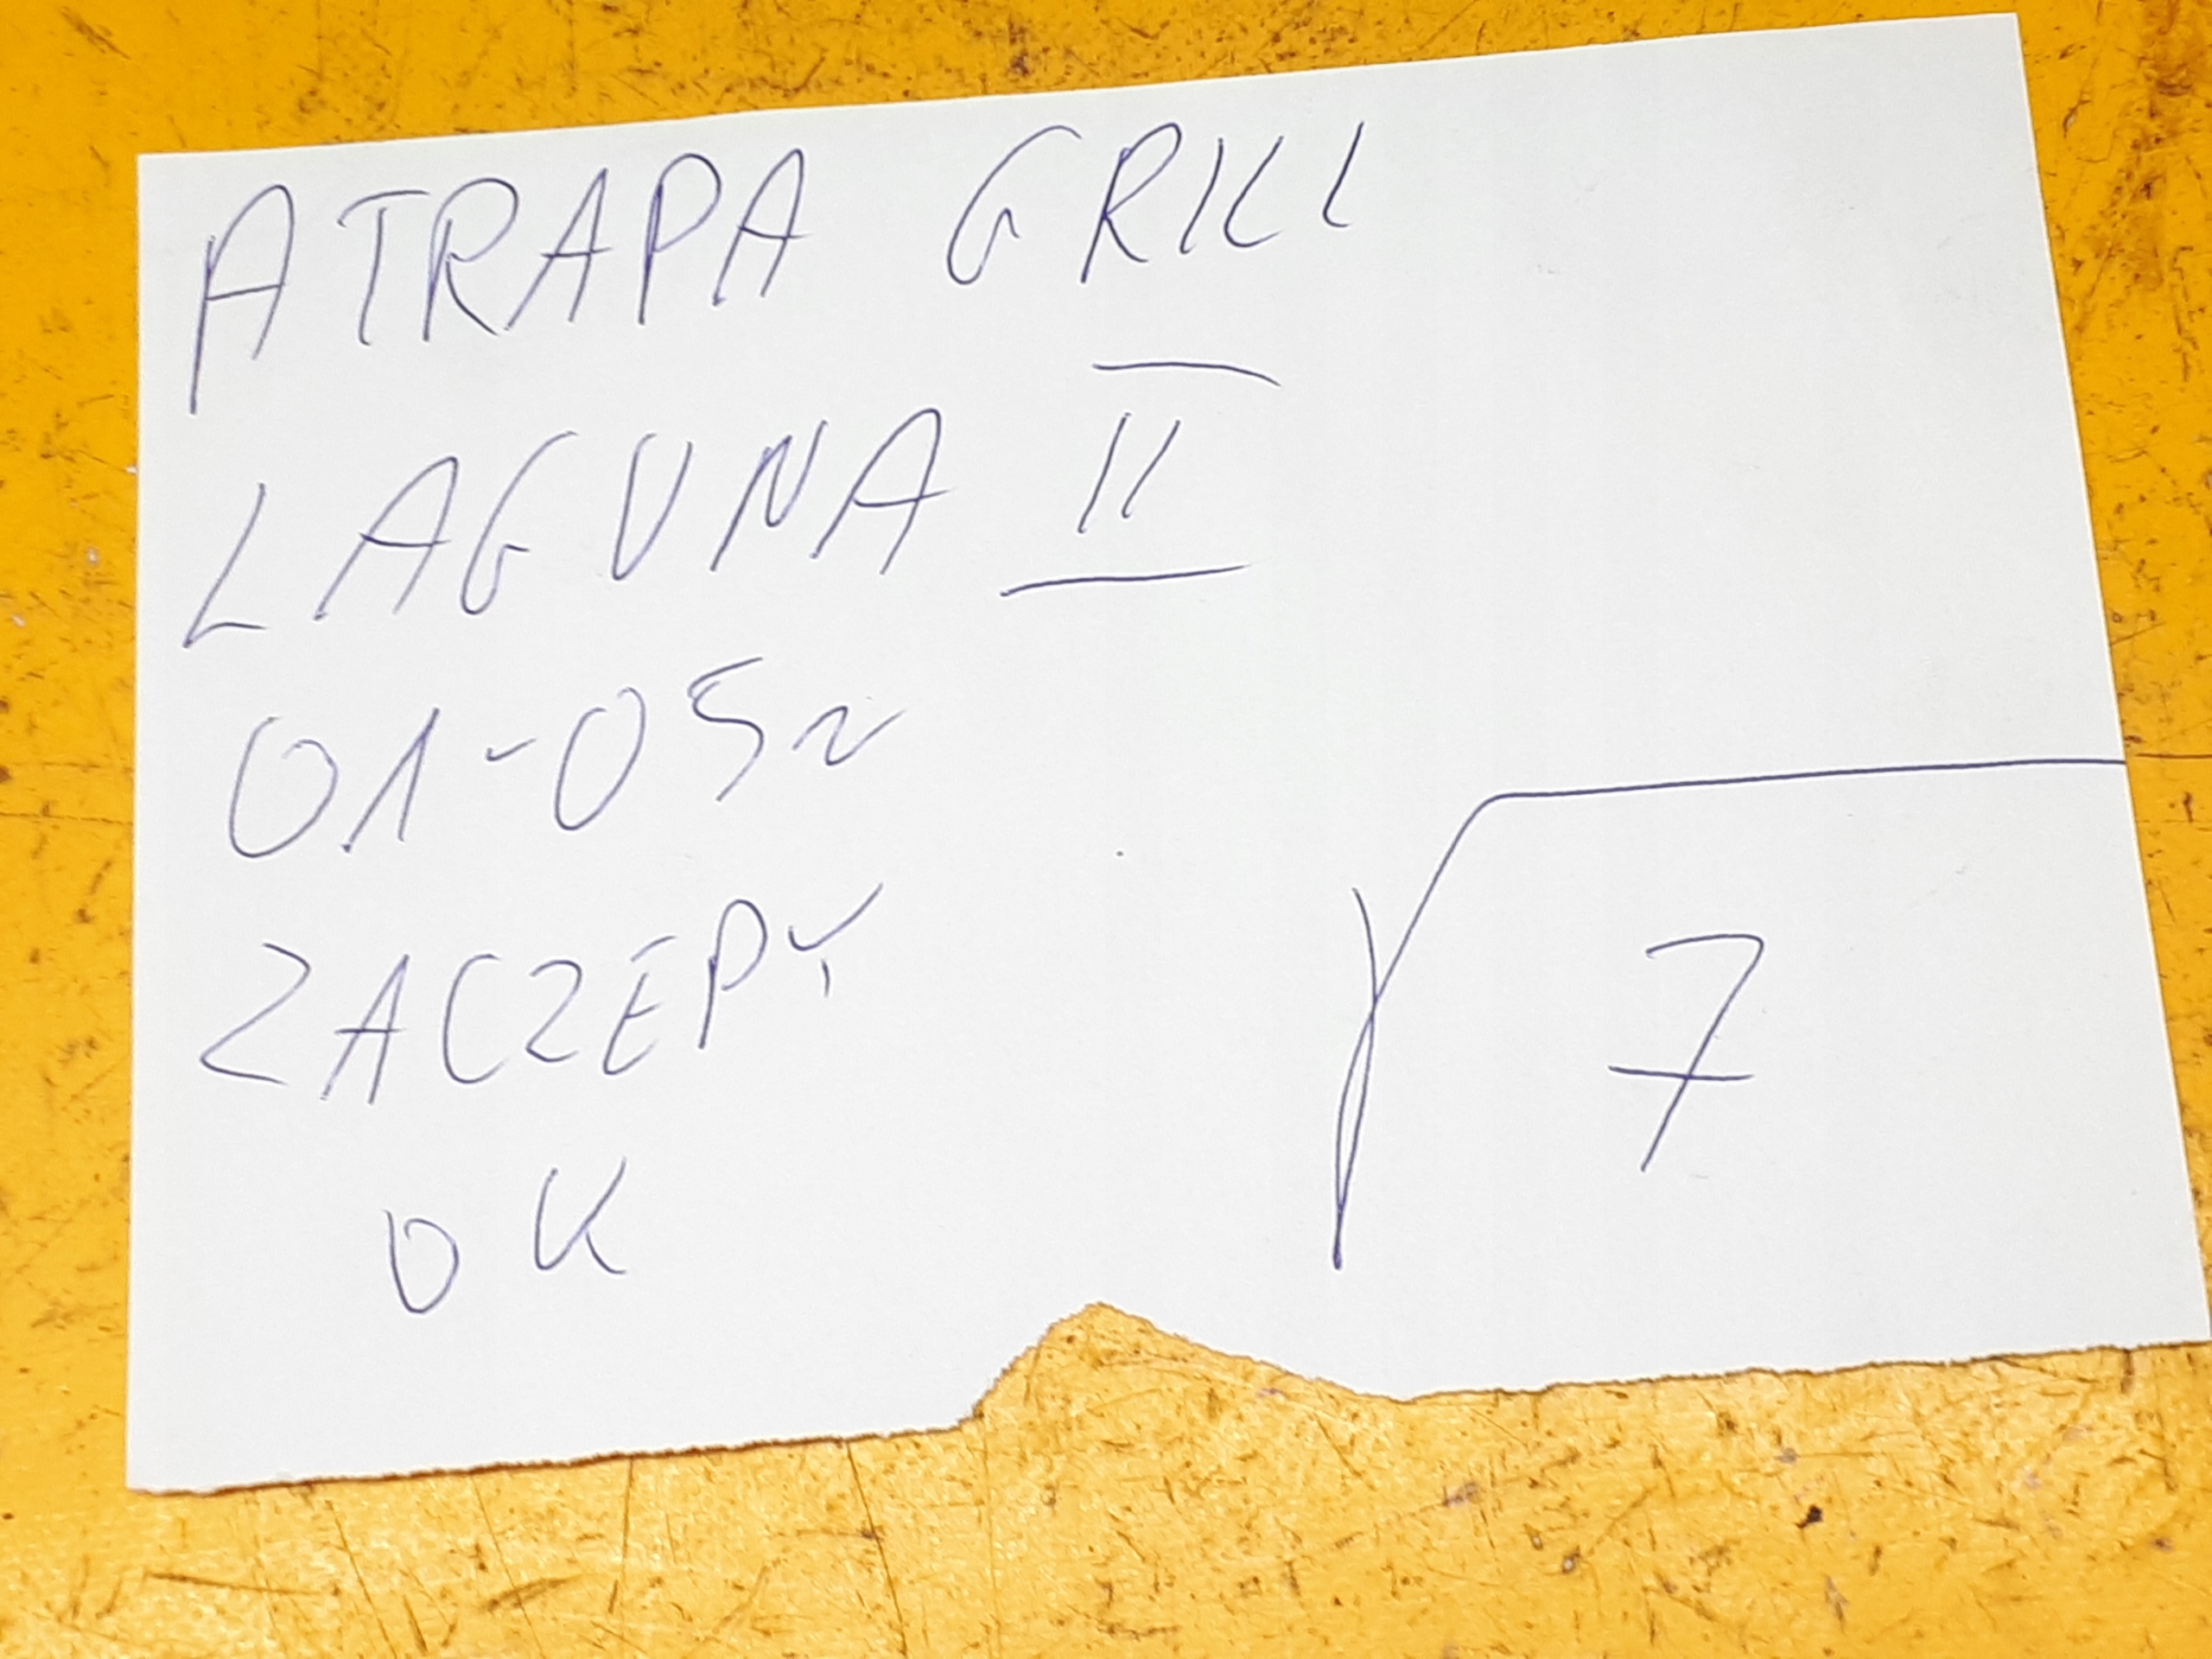 ATRAPA GRILL
LAGUNA II
01-05r
ZACZEPY
OK
7